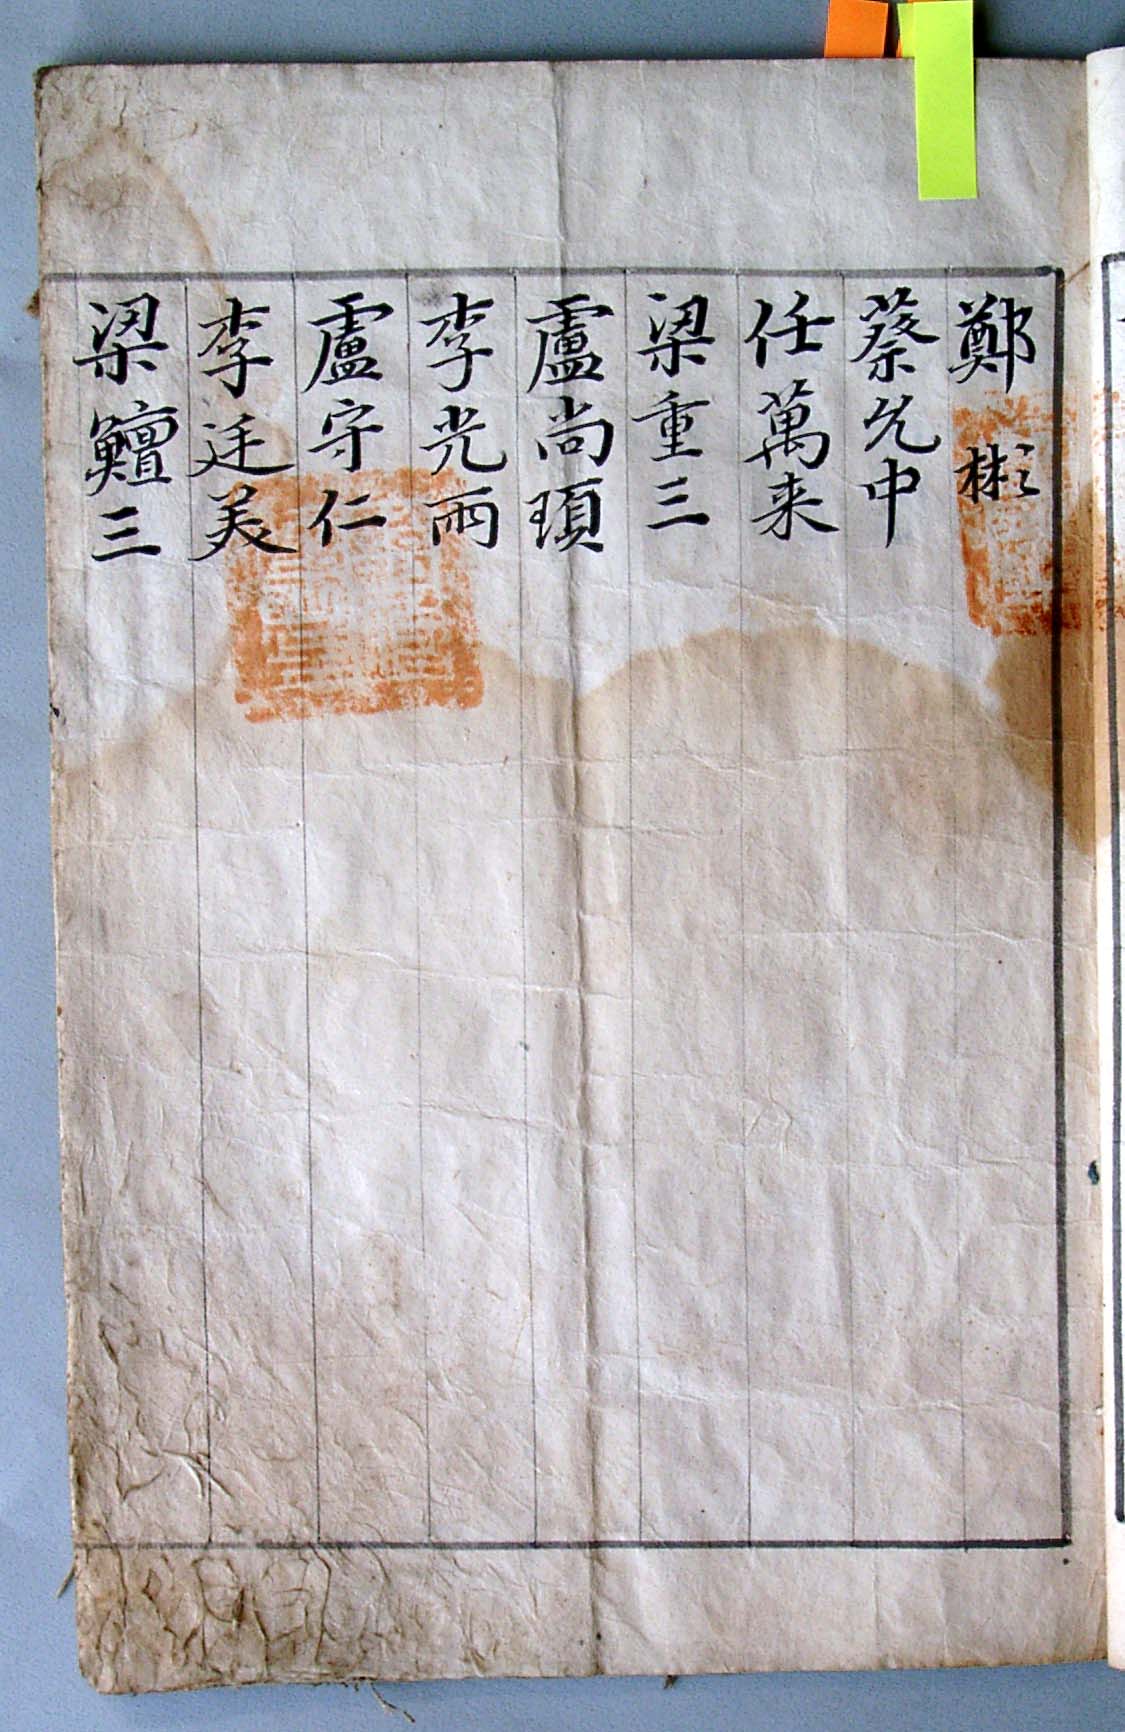 鄭彬
蔡允中
任萬来
梁重三
盧尚頊
李光雨
盧守仁
李廷美
梁鱣三